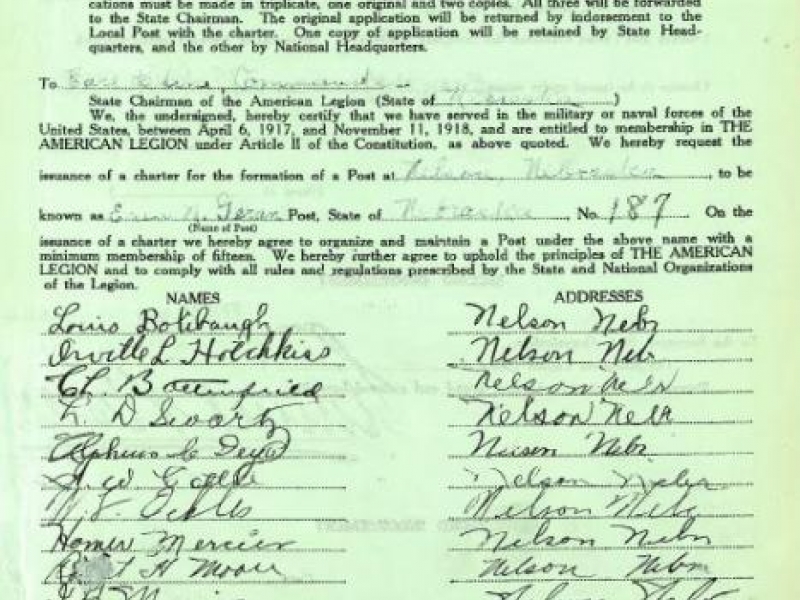 cations must be made in triplicate, one original and two copies. All three will be forwarded
to the State Chairman. The original application will be returned by indorsement to the
Local Post with the charter. One copy of application will be retained by State Head-
quarters, and the other by National Headquarters.
To Commander
State Chairman of the American Legion (State of Nebraska)
We, the undersigned, hereby certify that we have served in the military or naval forces of the
United States, between April 6, 1917, and November 11, 1918, and are entitled to membership in THE
AMERICAN LEGION under Article II of the Constitution, as above quoted. We hereby request the
issuance of a charter for the formation of a Post at Nelson, Nebraska, to be
known as Post, State of Nebraska, No. 187. On the
(Name of Post)
issuance of a charter we hereby agree to organize and maintain a Post under the above name with a
minimum membership of fifteen. We hereby further agree to uphold the principles of THE AMERICAN
LEGION and to comply with all rules and regulations prescribed by the State and National Organizations
of the Legion.
NAMES ADDRESSES
Louis Nelson Nebr
Orville L Hotchkiss Nelson Neb
Nelson Nebr
L D Swartz Nelson Nebr
Nelson Nebr
Nelson Nebr
Nelson Nebr
Homer Mercier Nelson Nebr
H Moore Nelson Nebr